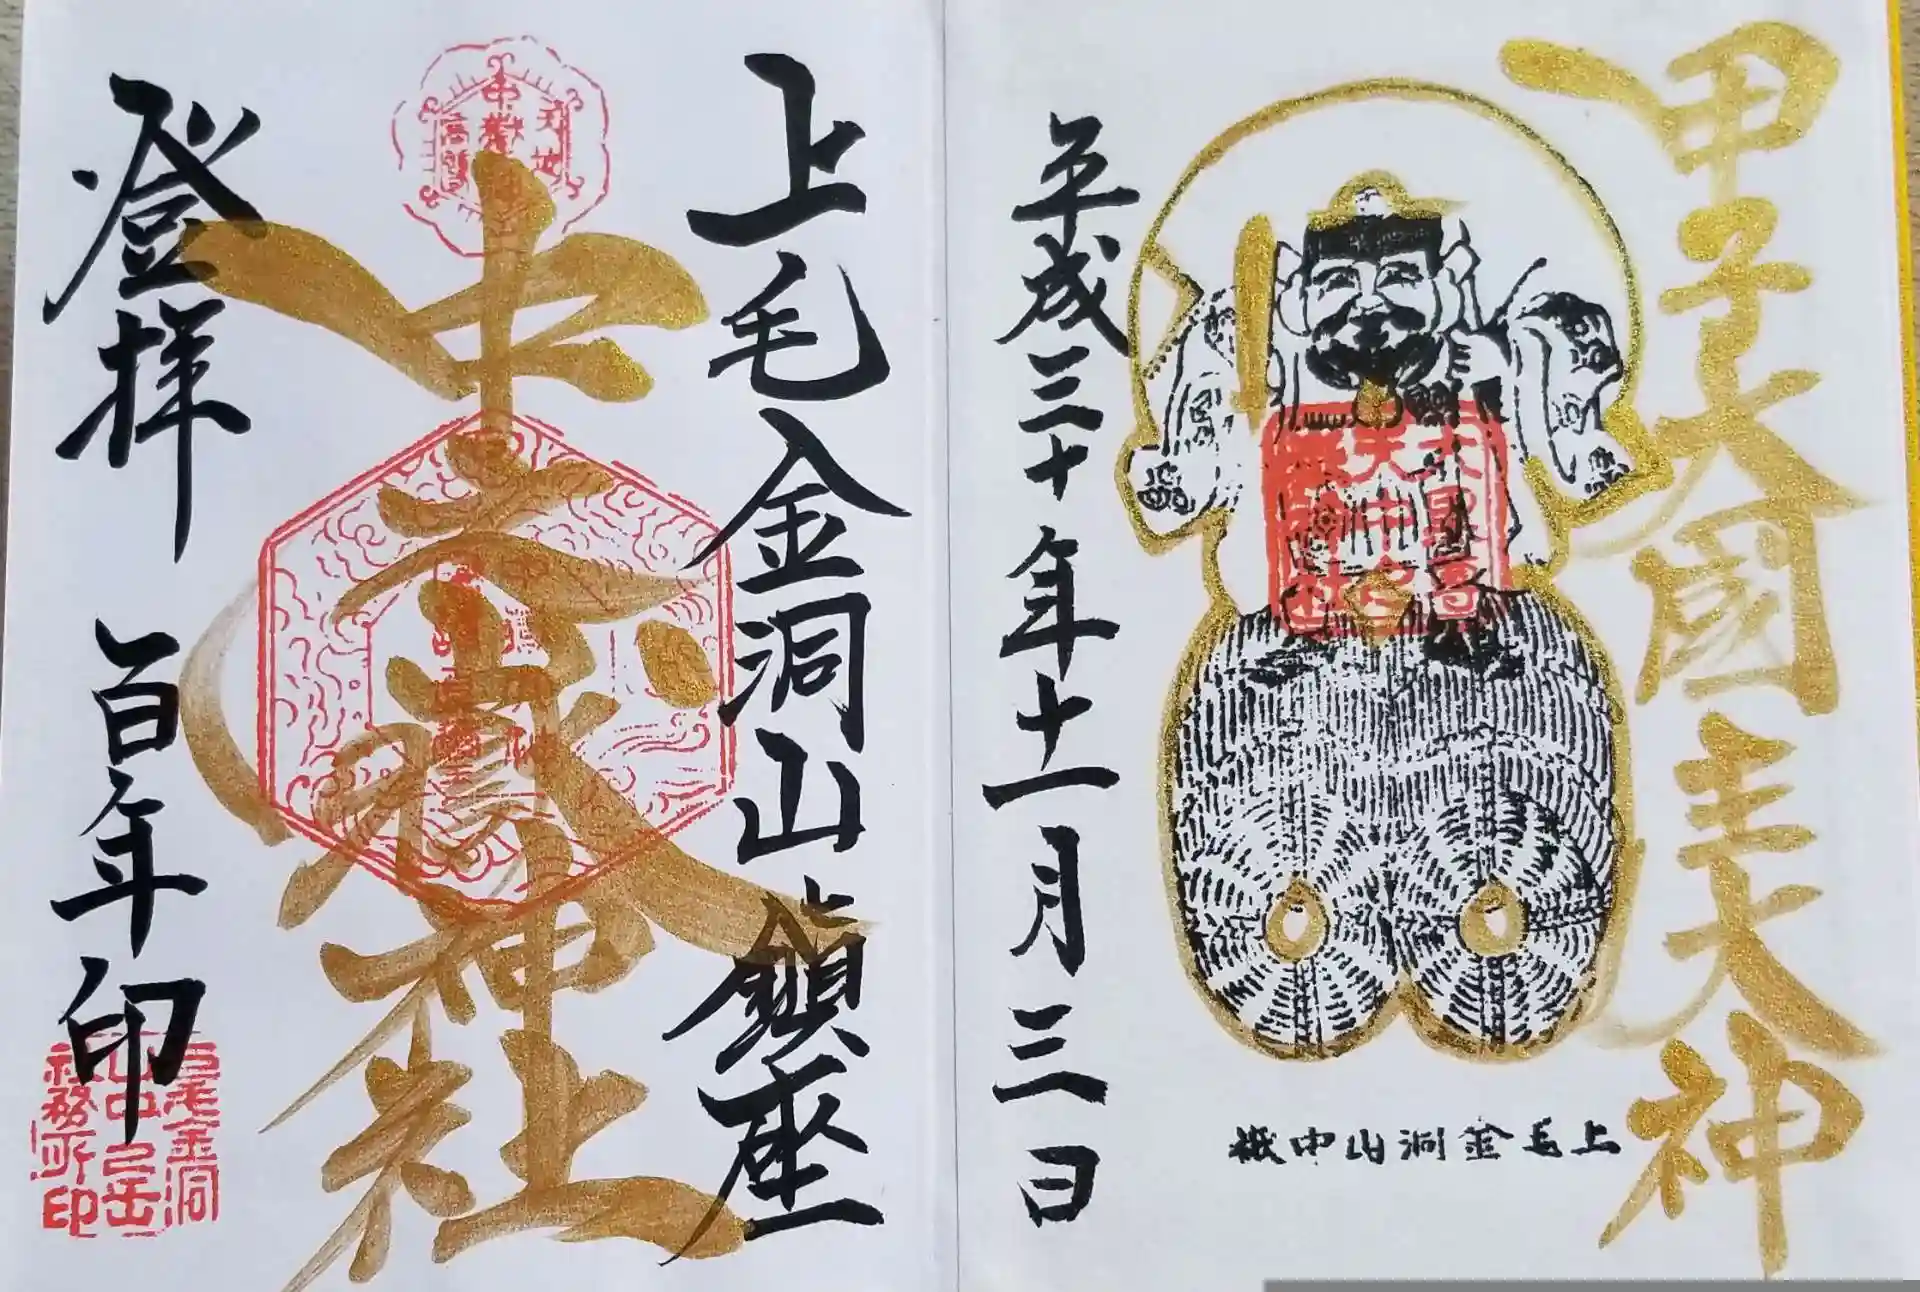 甲子大國主大神
上毛金洞山中嶽
平成三十年十一月三日
上毛金洞山鎮座
中之嶽神社
登拝 百年印
上毛金洞
山中之岳
社務所印